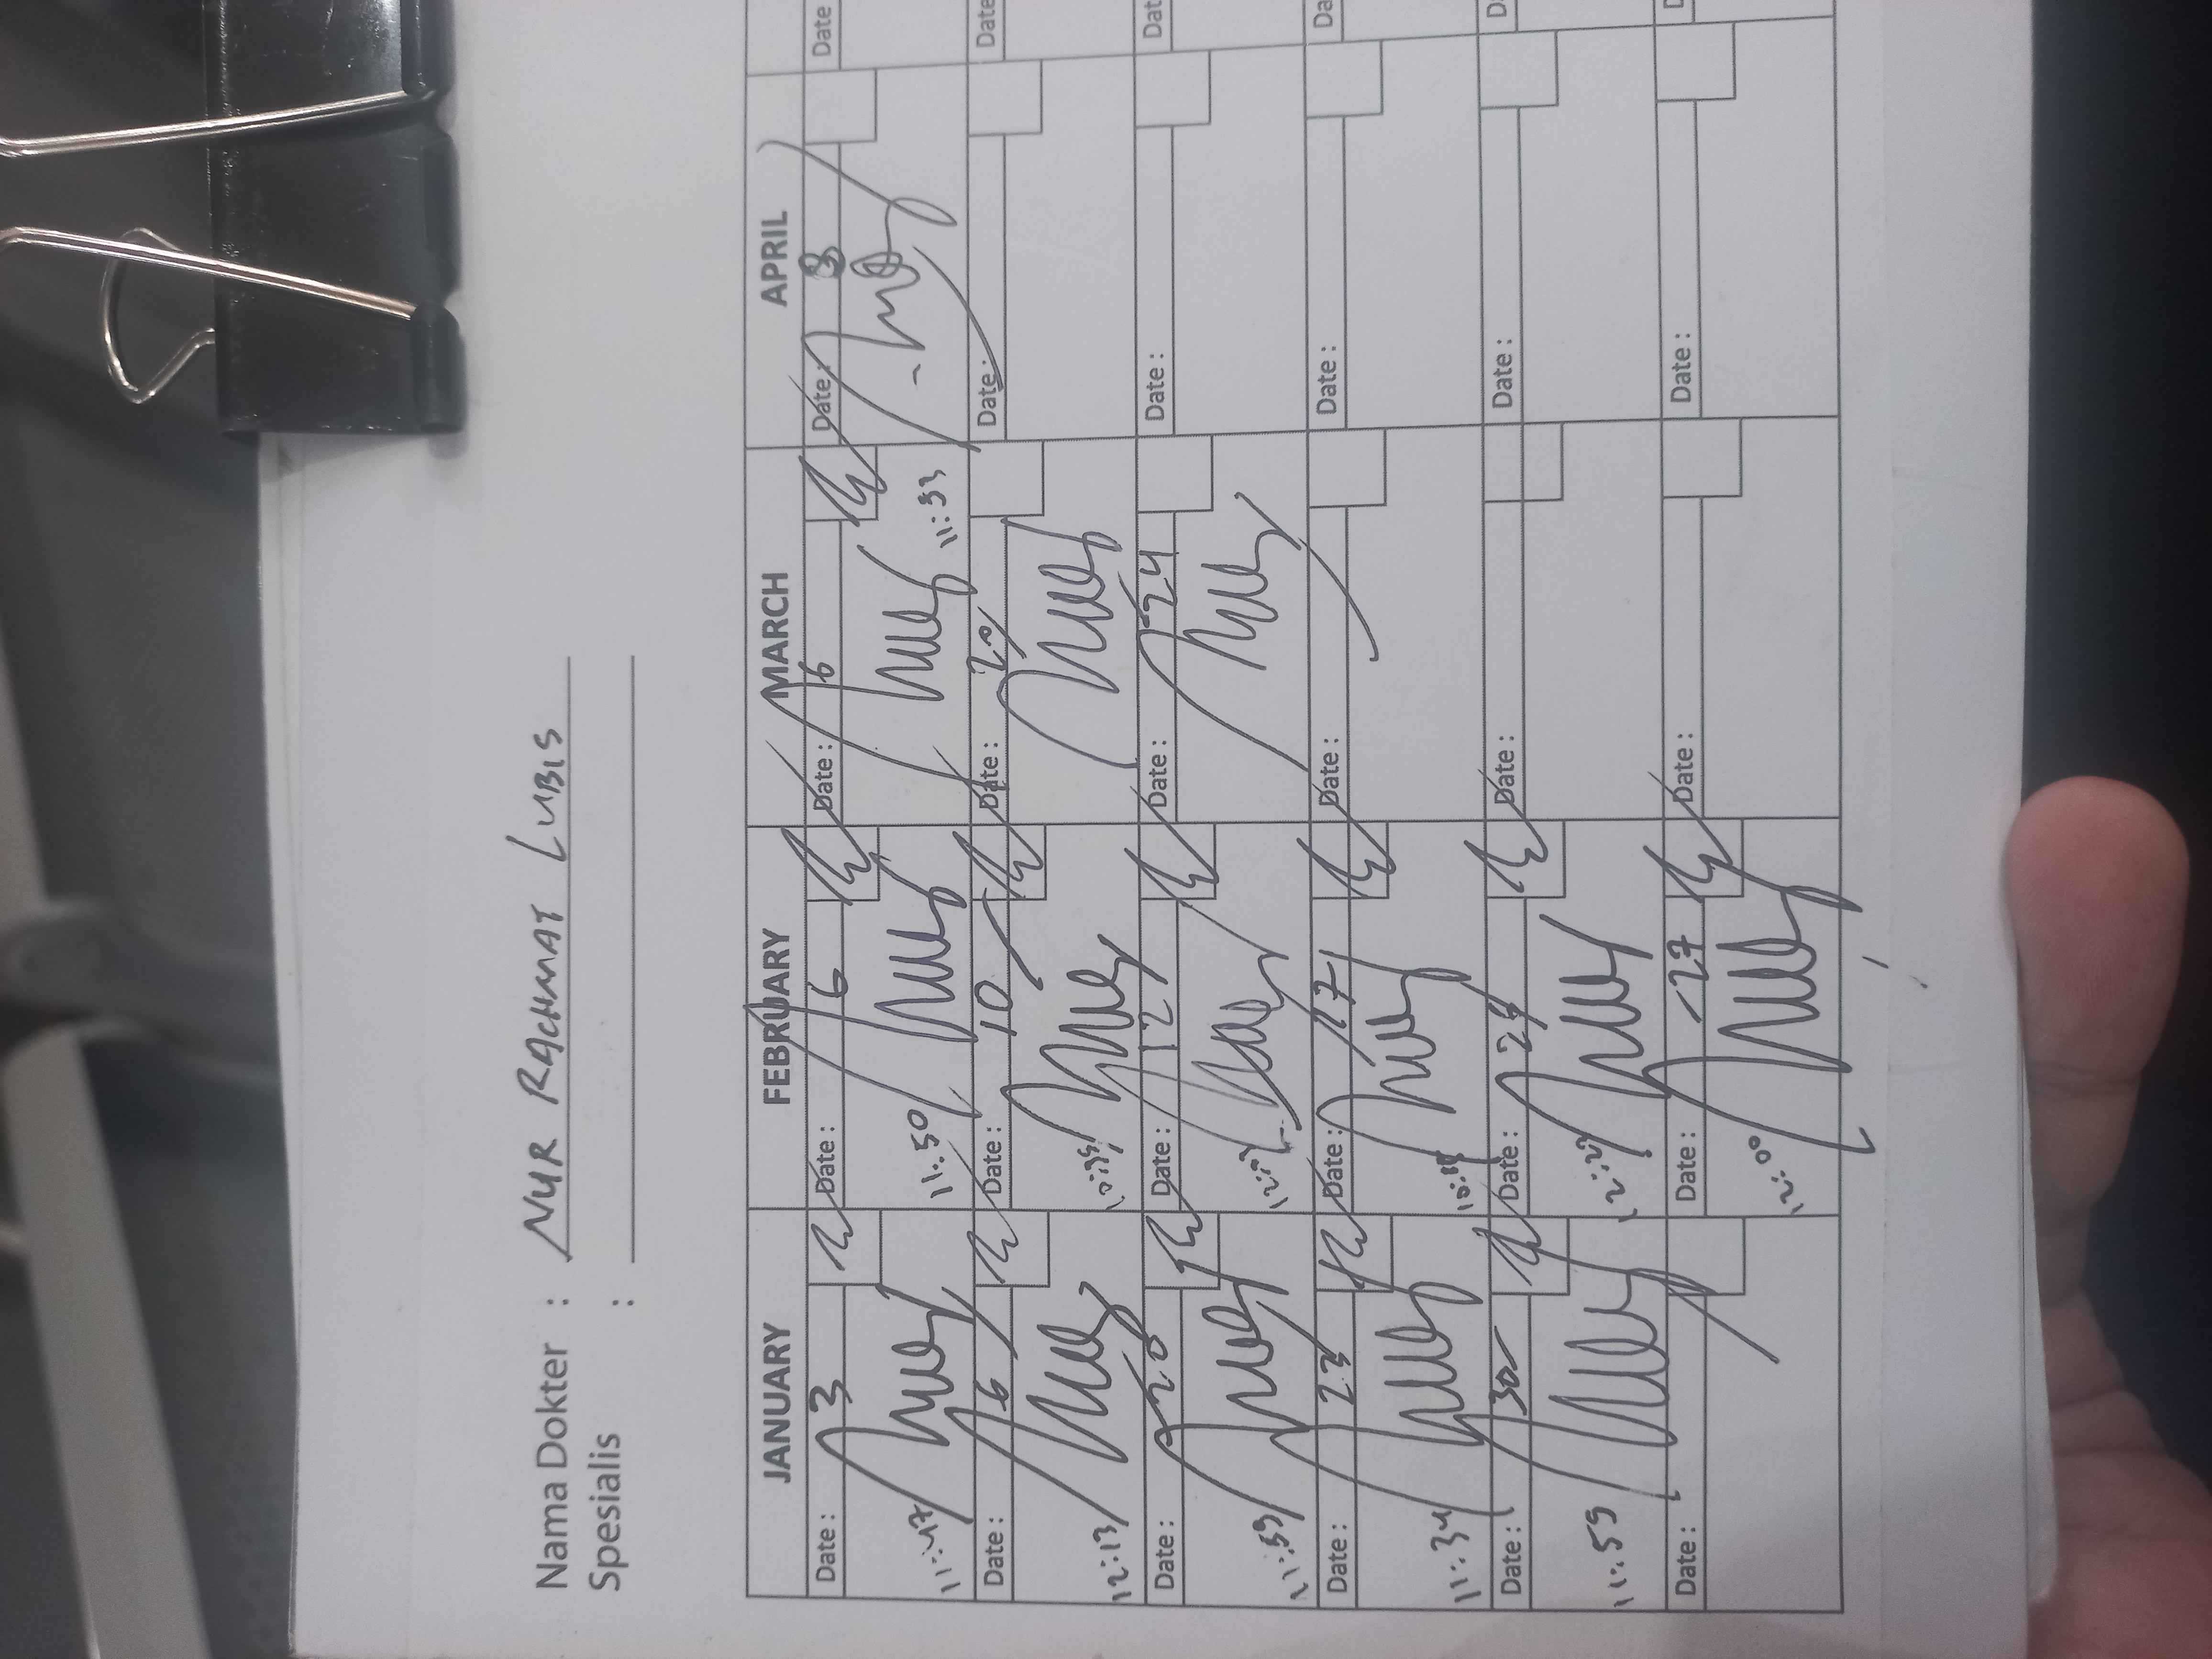 Nama Dokter : NUR RACHMAT LUBIS
Spesialis :
JANUARY FEBRUARY MARCH APRIL
Date : 3 Date : 6 Date : 6 Date : 8 Date
11:47 11:50 11:33
Date : 6 Date : 10 Date : 20 Date : Date
12:13
Date : 20 Date : 12 Date : 24 Date : Dat
11:59
Date : 23 Date : 17 Date : Date : Da
11:34
Date : 30 Date : 24 Date : Date : D
11:55
Date : Date : 27 Date : Date : D
12:00